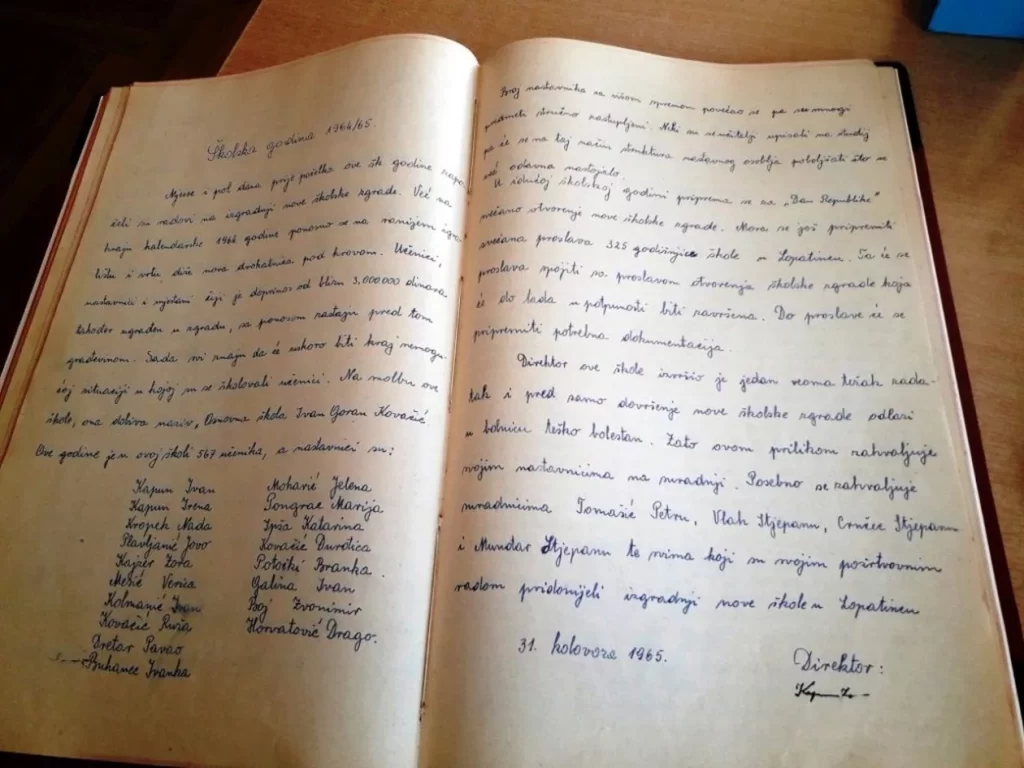 Školska godina 1964/65.
Mjesec i pol dana prije početka ove šk. godine zapo-
čeli su radovi na izgradnji nove školske zgrade. Već na
kraju kalendarske 1964 godine ponosno se na ranijem igra-
lištu i vrtu diže nova dvokatnica pod krovom. Učenici,
nastavnici i mještani čiji je doprinos od blizu 3,000.000 dinara
također ugrađen u zgradu, sa ponosom zastaju pred tom
građevinom. Sada svi znaju da će uskoro biti kraj nemogu-
ćoj situaciji u kojoj su se školovali učenici. Na molbu ove
škole, ona dobiva naziv, Osnovna škola Ivan Goran Kovačić.
Ove godine je u ovoj školi 567 učenika, a nastavnici su:
Kapun Ivan
Kapun Irena
Kropek Nada
Slavljanić Jovo
Kajzer Zora
Mesić Verica
Kolmanić Ivan
Kovačić Ruža
Dretar Pavao
Buhanec Ivanka
Moharić Jelena
Pongrac Marija
Ipša Katarina
Kovačić Đurđica
Potočki Branka.
Galina Ivan
Boj Zvonimir
Horvatović Drago.
Broj nastavnika sa višom spremom povećao se pa su mnogi
predmeti stručno zastupljeni. Neki su se učitelji upisali na studij
pa će se na taj način struktura nastavnog osoblja poboljšati što se
već odavna nastojalo.
U idućoj školskoj godini priprema se za „Dan Republike"
svečano otvorenje nove školske zgrade. Mora se još pripremiti
svečana proslava 325 godišnjice škole u Lopatincu. Ta će se
proslava spojiti sa proslavom otvorenja školske zgrade koja
će do tada u potpunosti biti završena. Do proslave će se
pripremiti potrebna dokumentacija.
Direktor ove škole izvršio je jedan veoma težak zada-
tak i pred samo dovršenje nove školske zgrade odlazi
u bolnicu teško bolestan. Zato ovom prilikom zahvaljuje
svojim nastavnicima na suradnji. Posebno se zahvaljuje
suradnicima Tomašić Petru, Vlah Stjepanu, Crnčec Stjepanu
i Mundar Stjepanu te svima koji su svojim požrtvovnim
radom pridonijeli izgradnji nove škole u Lopatincu
31. kolovoza 1965.
Direktor: